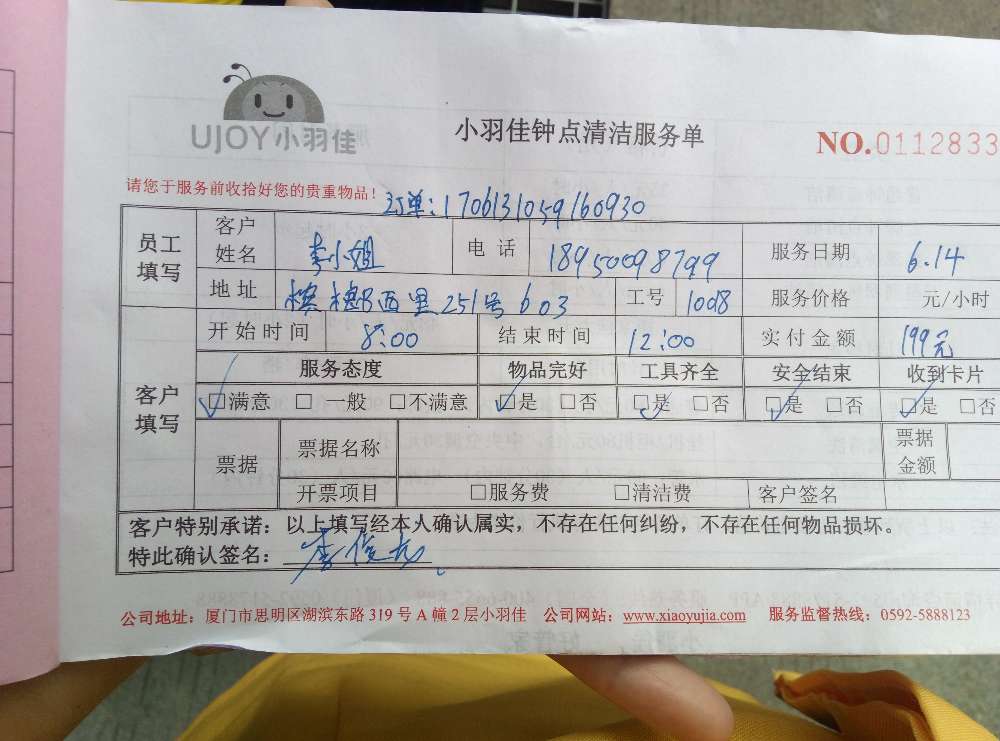 UJOY小羽佳
小羽佳钟点清洁服务单
NO.0112833
请您于服务前收拾好您的贵重物品！
订单:170613105916０930
员工填写 客户姓名 李小姐 电话 18950098799 服务日期 6.14
地址 西里251号603 工号 1008 服务价格 元/小时
客户填写 开始时间 8:00 结束时间 12:00 实付金额 199元
服务态度 物品完好 工具齐全 安全结束 收到卡片
☑满意 □一般 □不满意 ☑是 □否 ☑是 □否 ☑是 □否 ☑是 □否
票据 票据名称 票据金额
开票项目 □服务费 □清洁费 客户签名
客户特别承诺：以上填写经本人确认属实，不存在任何纠纷，不存在任何物品损坏。
特此确认签名：李俊
公司地址：厦门市思明区湖滨东路319号A幢2层小羽佳 公司网站：www.xiaoyujia.com 服务监督热线：0592-5888123